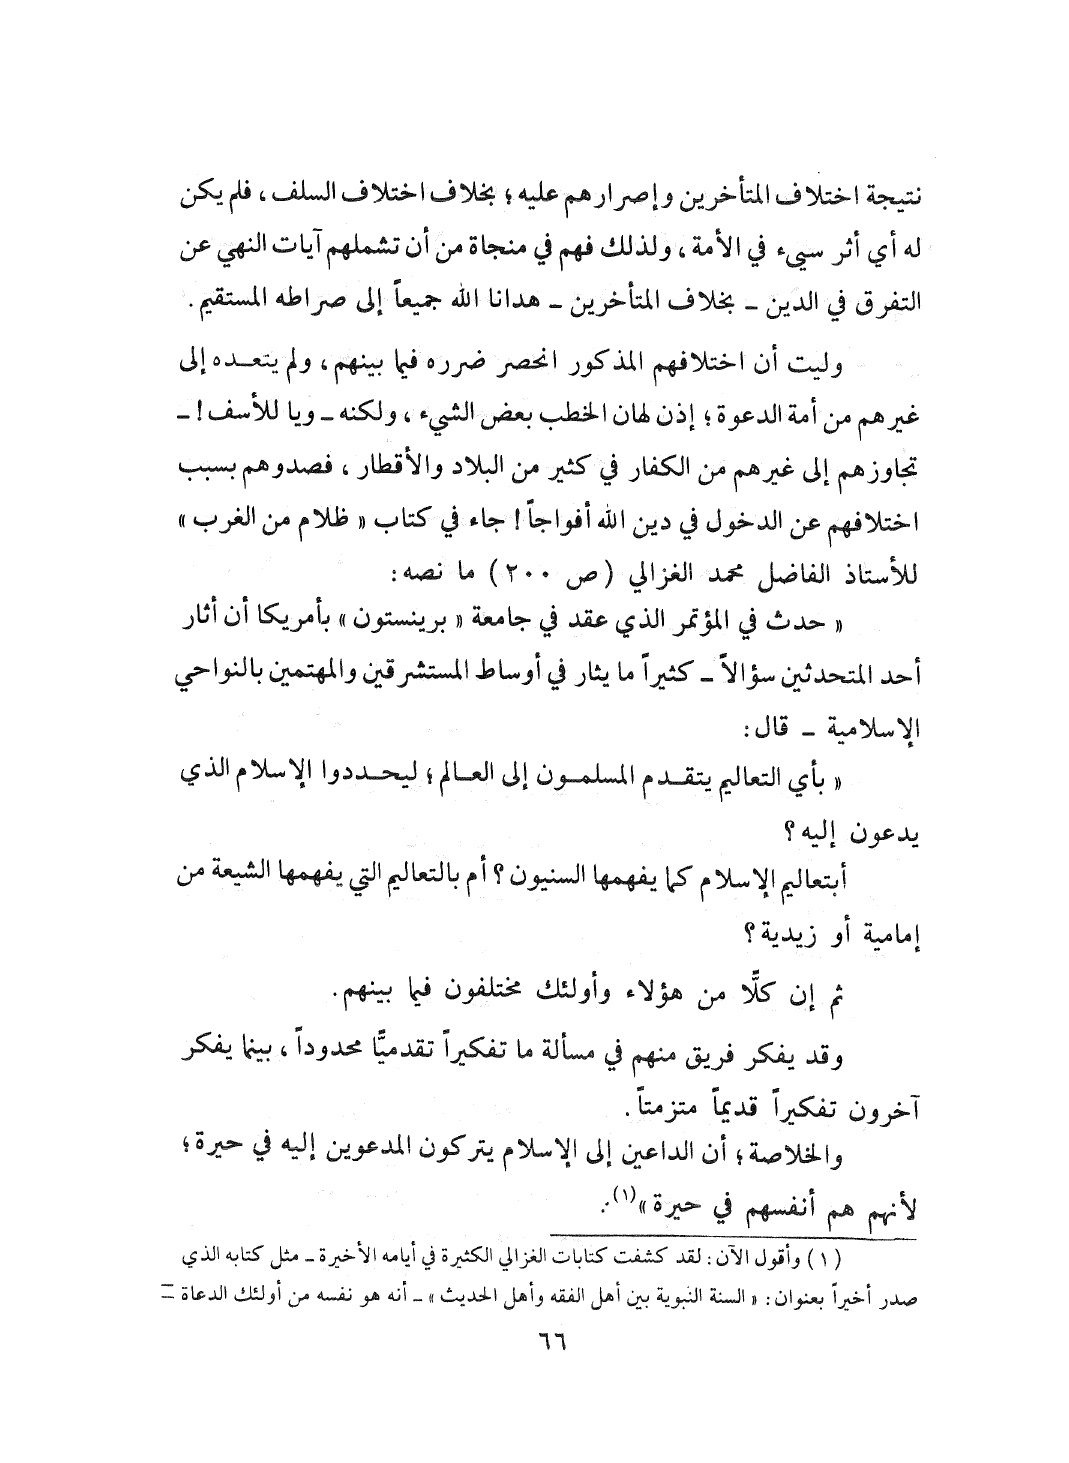 نتيجة اختلاف المتأخرين وإصرارهم عليه؛ بخلاف اختلاف السلف، فلم يكن
له أي أثر سيىء في الأمة، ولذلك فهم في منجاة من أن تشملهم آيات النهي عن
التفرق في الدين ـ بخلاف المتأخرين ـ هدانا الله جميعاً إلى صراطه المستقيم.
وليت أن اختلافهم المذكور انحصر ضرره فيما بينهم، ولم يتعـده إلى
غيرهم من أمة الدعوة؛ إذن لهان الخطب بعض الشيء، ولكنه ـ ويا للأسف! ـ
تجاوزهم إلى غيرهم من الكفار في كثير من البلاد والأقطار، فصدوهم بسبب
اختلافهم عن الدخول في دين الله أفواجاً! جاء في كتاب « ظلام من الغرب »
للأستاذ الفاضل محمد الغزالي ( ص ٢٠٠ ) ما نصه:
« حدث في المؤتمر الذي عقد في جامعة « برينستون » بأمريكا أن أثار
أحد المتحدثين سؤالاً ـ كثيراً ما يثار في أوساط المستشرقين والمهتمين بالنواحي
الإسلامية ـ قال:
« بأي التعاليم يتقـدم المسلمـون إلى العـالم؛ ليحـددوا الإسلام الذي
يدعون إليه؟
أبتعاليم الإسلام كما يفهمها السنيون؟ أم بالتعاليم التي يفهمها الشيعة من
إمامية أو زيدية؟
ثم إن كلًّا من هؤلاء وأولئك مختلفون فيما بينهم.
وقد يفكر فريق منهم في مسألة ما تفكيراً تقدميًّا محدوداً، بينما يفكر
آخرون تفكيراً قديماً متزمتاً.
والخلاصة؛ أن الداعين إلى الإسلام يتركون المدعوين إليه في حيرة؛
لأنهم هم أنفسهم في حيرة »(١).
( ١ ) وأقول الآن: لقد كشفت كتابات الغزالي الكثيرة في أيامه الأخيرة ـ مثل كتابه الذي
صدر أخيراً بعنوان: « السنة النبوية بين أهل الفقه وأهل الحديث » ـ أنه هو نفسه من أولئك الدعاة =
٦٦